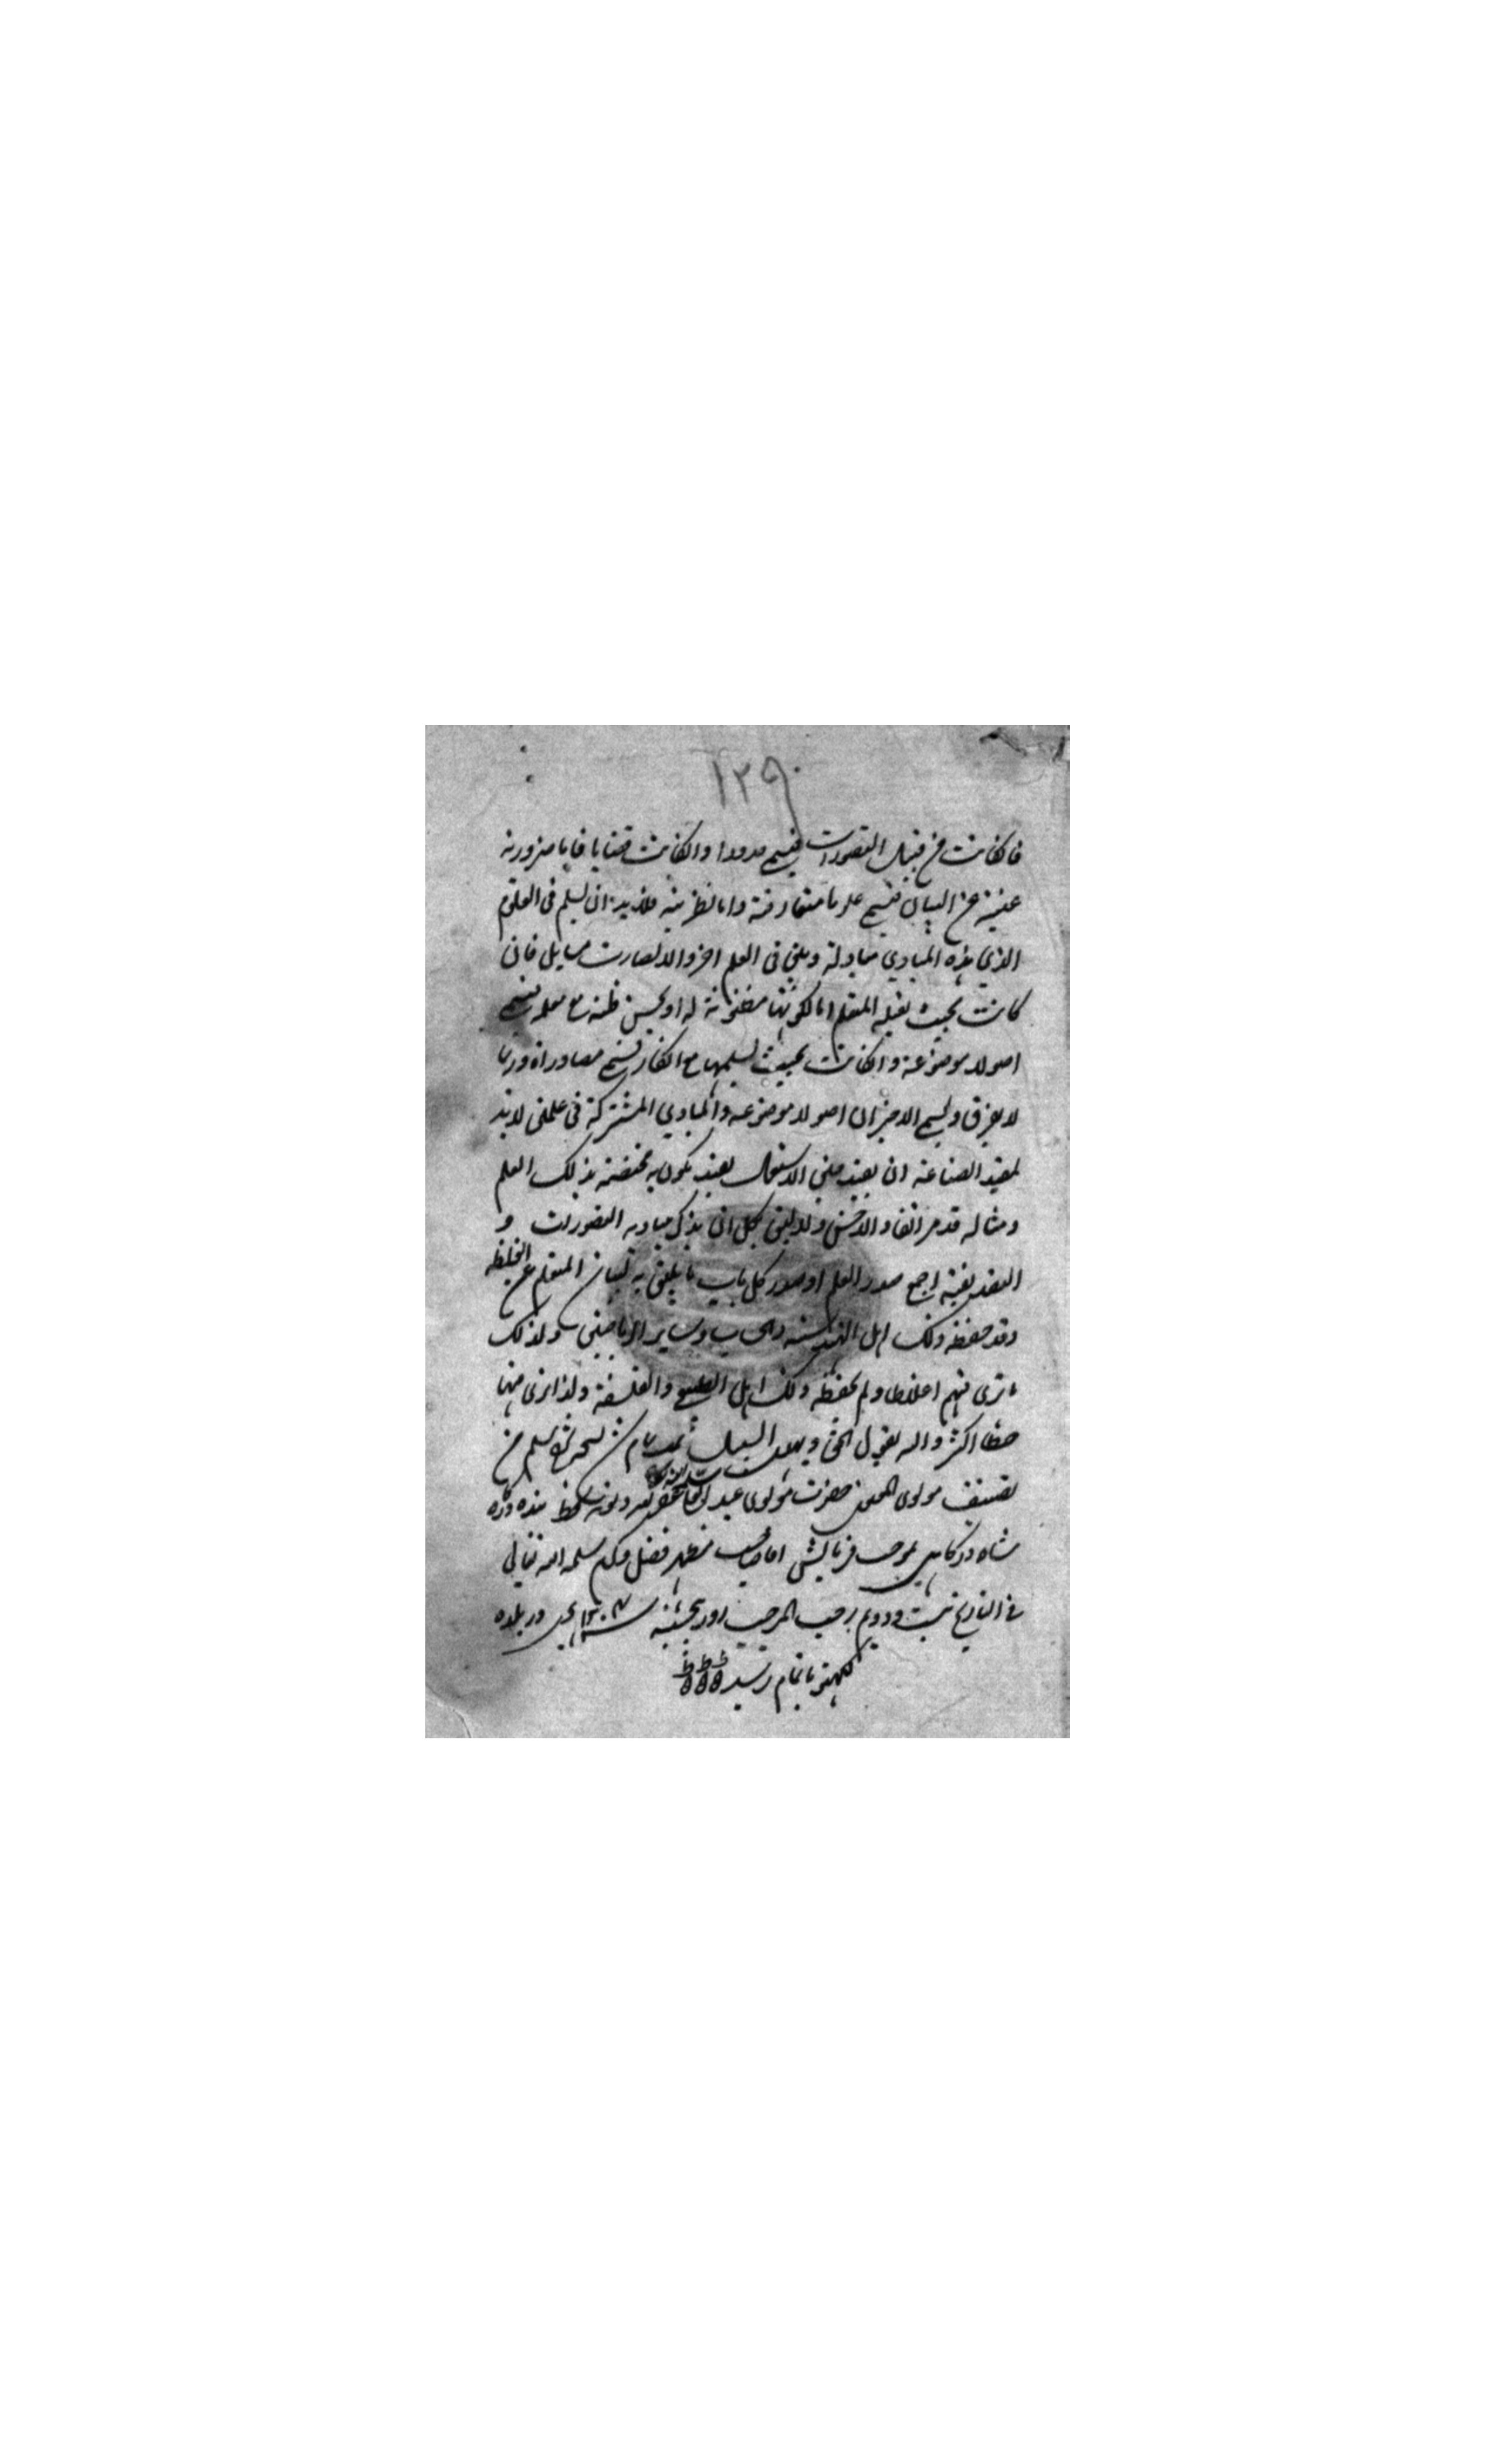 ١٢٩
فاكانت من قبيل التصورات فيسمى حدودا وانكانت قضايا فاما ضرورية
غنية عن البيان فيسمى علوما متعارفة واما نظرية فلا بد ان يسلم فى العلوم
الذي هذه المبادي مباد له ويبين فى العلم اخر والا لصارت مسايل فان
كانت بحيث يقبله المتعلم اما لكونها مظنونة له او بحسن ظنه مع معلمه يسمى
اصولا موضوعة وانكانت بحيث تسلمها مع انكار يسمى مصادرات وربما
لا يفرق ويسمى الامران اصولا موضوعه والمبادي المشتركة فى علمين لا بد
لمفيد الصناعة ان يفيد حين الاستعمال بقيد يكون به مختصة بذلك العلم
ومثاله قد مر انفا والاحسن ولاليق لكل ان يذكر مباديه التصورات و
التصديقية اجمع صدر العلم او صدر كل باب ما يليق به ليبان المتعلم عن الغلط
وقد حفظه ذلك اهل الهندسه والحساب وساير الرياضيين ولذلك
ما ترى فيهم اغلاطا ولم يحفظه ذلك اهل الطبيعي والفلسفة ولذا ترى فيها
خطا اكثر والله يقول الحق ويهدى السبيل تمت تمام شد شرح سلم من
تصنيف مولوى حضرت مولوى عبد العلى بخط بنده درگاه
شاه بموجب فرمايش صاحب مظهر فضل وكرم سلمه الله تعالى
فى التاريخ بيست ودويم رجب المرجب روز پنجشنبه سنه ١٢٠٧ هجرى در بلده
لكهنو باتمام رسيد